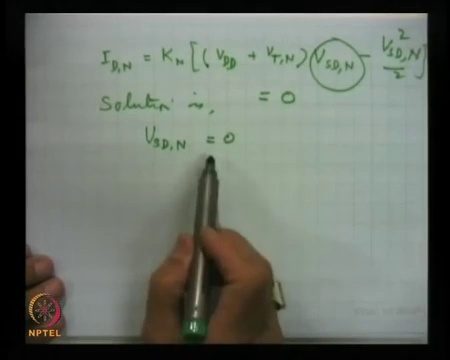 I_{D,N} = K_N [ ( V_{DD} + V_{T,N} ) V_{SD,N} - \frac{V_{SD,N}^2}{2} ]
Solution is, = 0
V_{SD,N} = 0
NPTEL